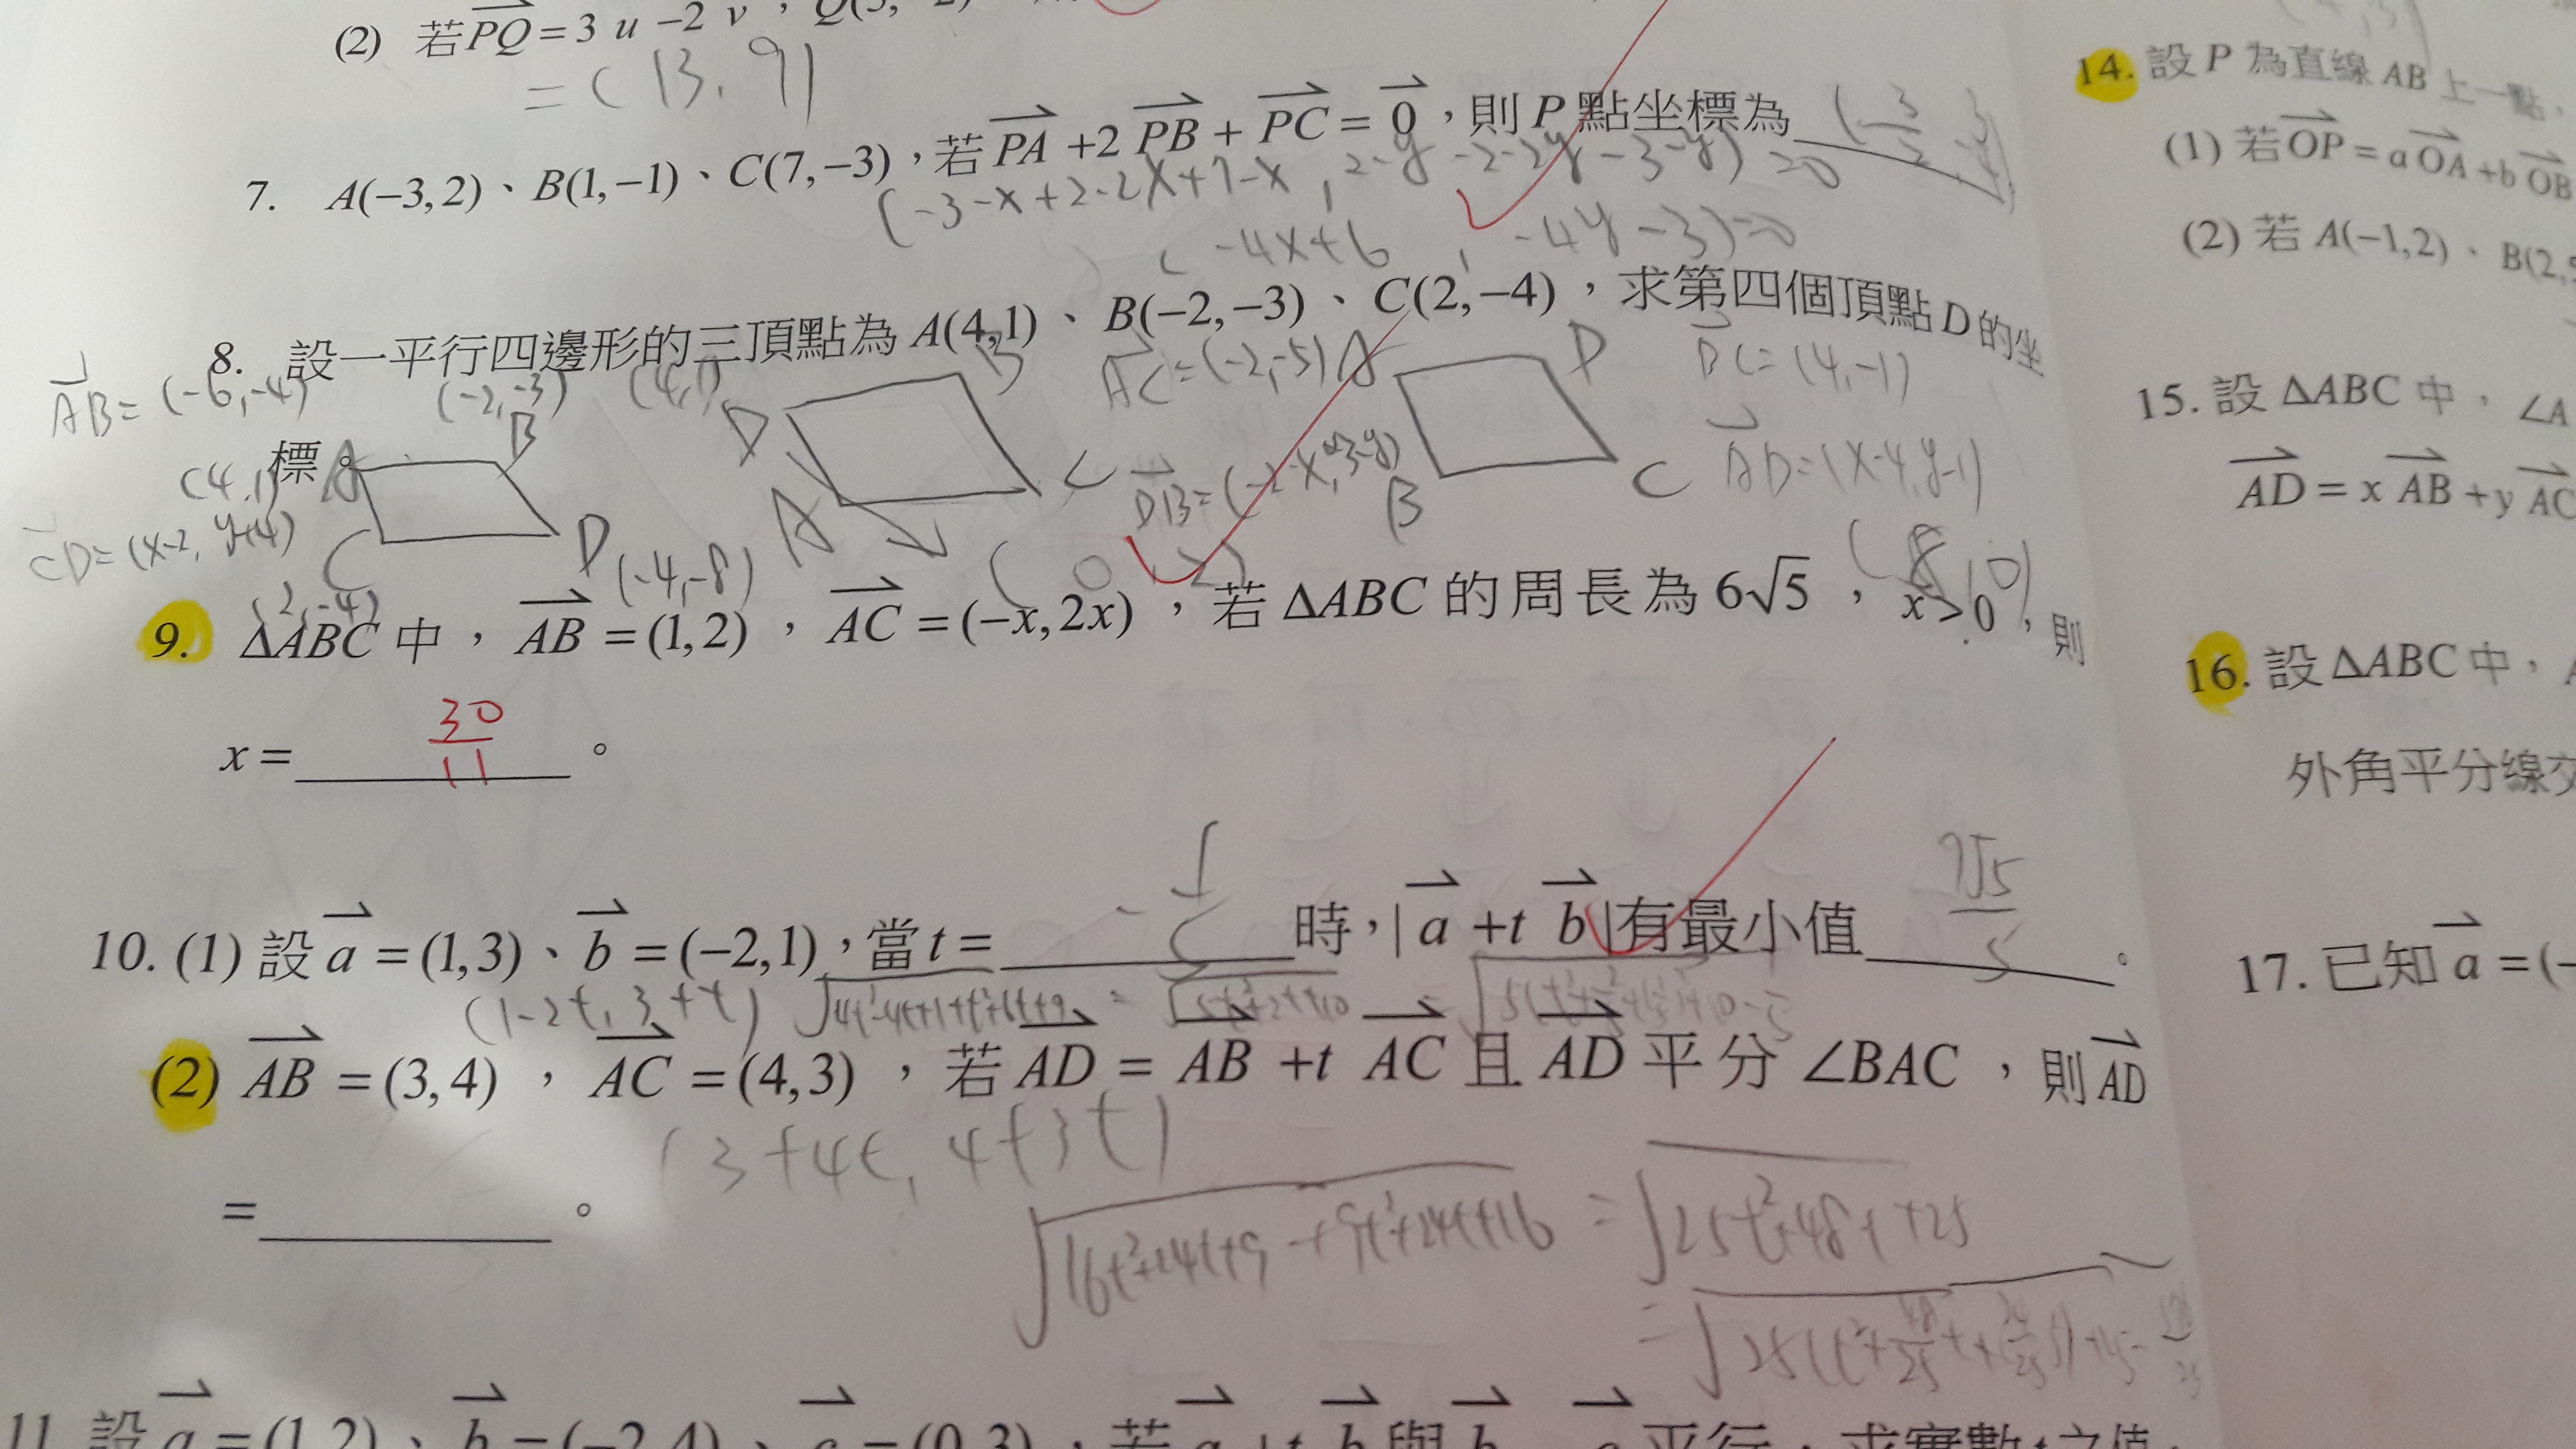 (2) 若PQ=3 u -2 v，Q(5,
=(13,9)
7. A(-3,2)、B(1,-1)、C(7,-3)，若PA+2PB+PC=0，則P點坐標為
(-3-x+2-2x+7-x, 2-y-2-2y-3-y)=0
(-4x+6, -4y-3)=0
8. 設一平行四邊形的三頂點為A(4,1)、B(-2,-3)、C(2,-4)，求第四個頂點D的坐
AB=(-6,-4) (-2,-3) (4,1) B AC=(-2,-5) A D BC=(4,-1)
標。
(4,1) A B D C DB=(-2-x,-3-y) B C AD=(x-4,y-1)
CD=(x-2,y+4) C D (-4,-8) A (0,2) (8,0)
(2,-4)
9. ΔABC中，AB=(1,2)，AC=(-x,2x)，若ΔABC的周長為6√5，x>0，則
x= 30/11 。
10. (1) 設a=(1,3)、b=(-2,1)，當t= -1/5 時，|a+t b|有最小值 7√5/5 。
(1-2t,3+t) √4t²-4t+1+t²+6t+9 = √5t²+2t+10
(2) AB=(3,4)，AC=(4,3)，若AD=AB+t AC且AD平分∠BAC，則AD
(3+4t,4+3t)
= 。
√16t²+24t+9+9t²+24t+16 = √25t²+48t+25
11. 設a=(1,2)、b=(-2,4)、c=(0,3)，若a+t b與b
14. 設P為直線AB上一點，
(1) 若OP=aOA+bOB
(2) 若A(-1,2)、B(2,5
15. 設ΔABC中，∠A
AD=x AB+y AC
16. 設ΔABC中，
外角平分線交
17. 已知a=(-